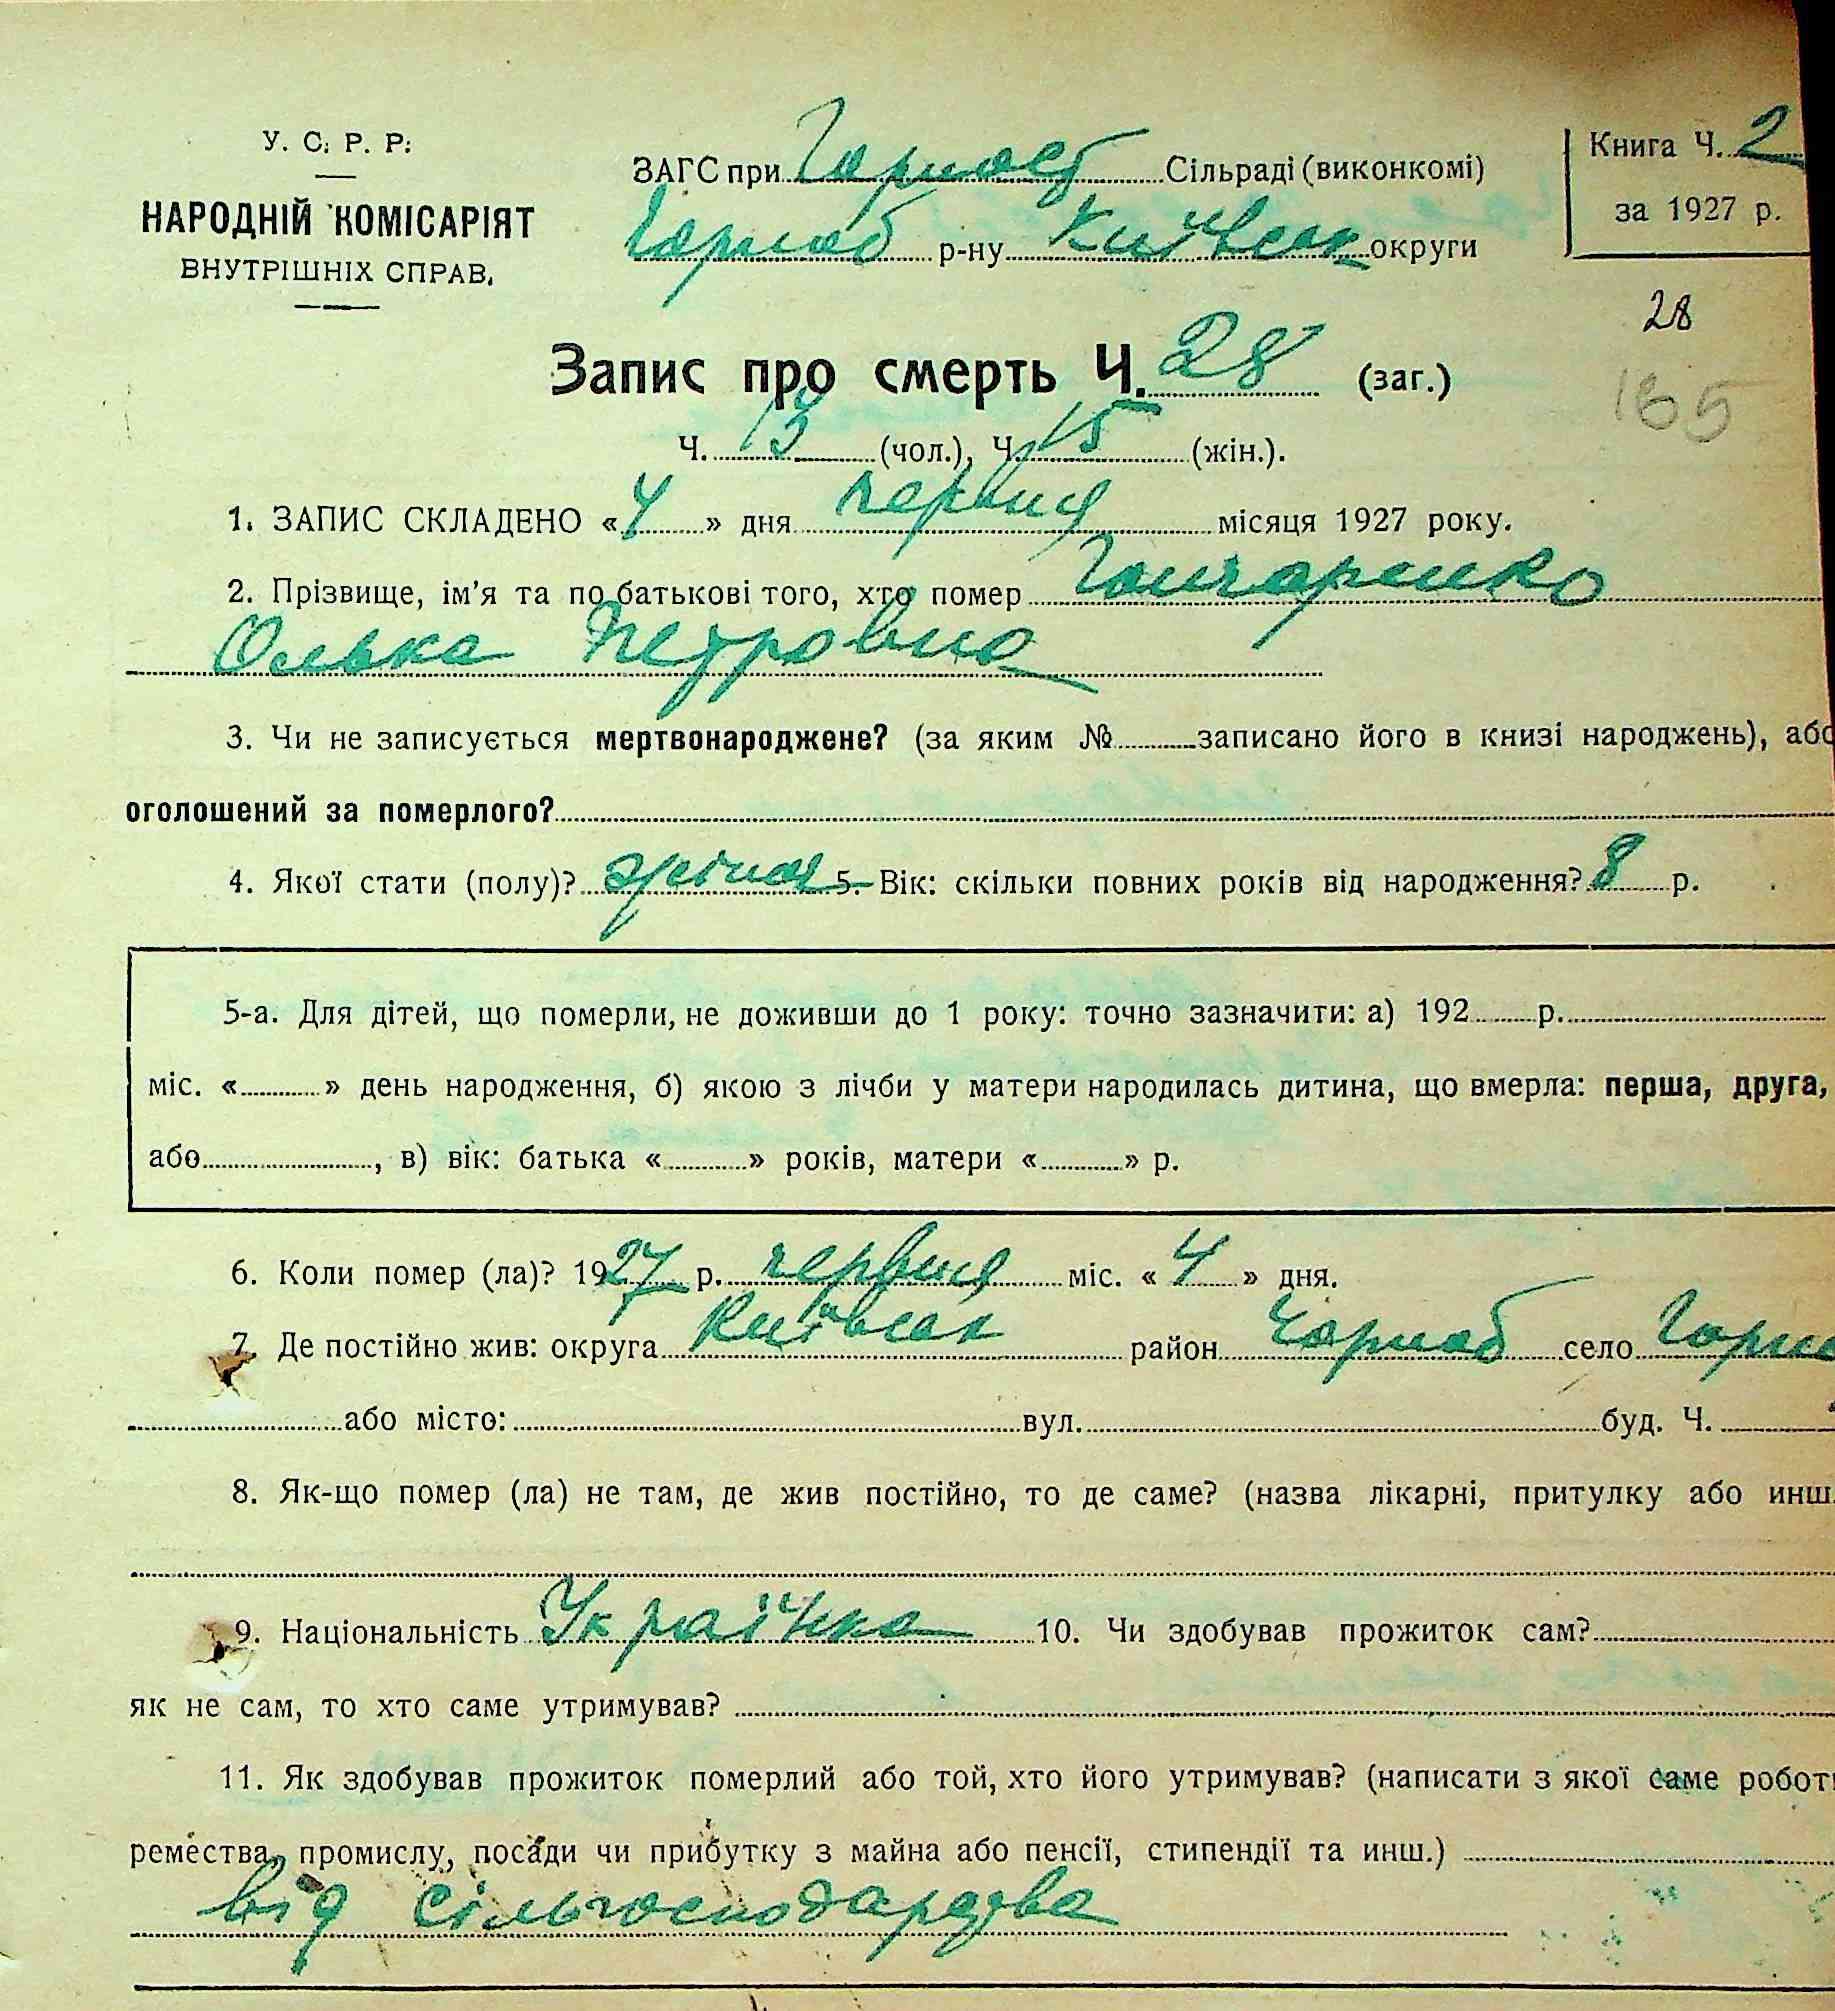 У. С. Р. Р.
НАРОДНІЙ КОМІСАРІЯТ
ВНУТРІШНІХ СПРАВ.
ЗАГС при Горност Сільраді (виконкомі)
Чорноб р-ну Київськ округи
Книга Ч. 2
за 1927 р.
28
165
Запис про смерть Ч. 28 (заг.)
Ч. 13 (чол.), Ч. 15 (жін.).
1. ЗАПИС СКЛАДЕНО «4» дня червня місяця 1927 року.
2. Прізвище, ім'я та по батькові того, хто помер Гончаренко
Олька Петровна
3. Чи не записується мертвонароджене? (за яким № записано його в книзі народжень), або
оголошений за померлого?
4. Якої стати (полу)? жіноч 5. Вік: скільки повних років від народження? 8 р.
5-а. Для дітей, що померли, не доживши до 1 року: точно зазначити: а) 192 р.
міс. « » день народження, б) якою з лічби у матери народилась дитина, що вмерла: перша, друга,
або , в) вік: батька « » років, матери « » р.
6. Коли помер (ла)? 1927 р. червня міс. «4» дня.
7. Де постійно жив: округа Київськ район Чорноб село Горно
або місто: вул. буд. Ч.
8. Як-що помер (ла) не там, де жив постійно, то де саме? (назва лікарні, притулку або инш.
9. Національність Українка 10. Чи здобував прожиток сам?
як не сам, то хто саме утримував?
11. Як здобував прожиток померлий або той, хто його утримував? (написати з якої саме роботи
ремества, промислу, посади чи прибутку з майна або пенсії, стипендії та инш.)
від сільгосподарства